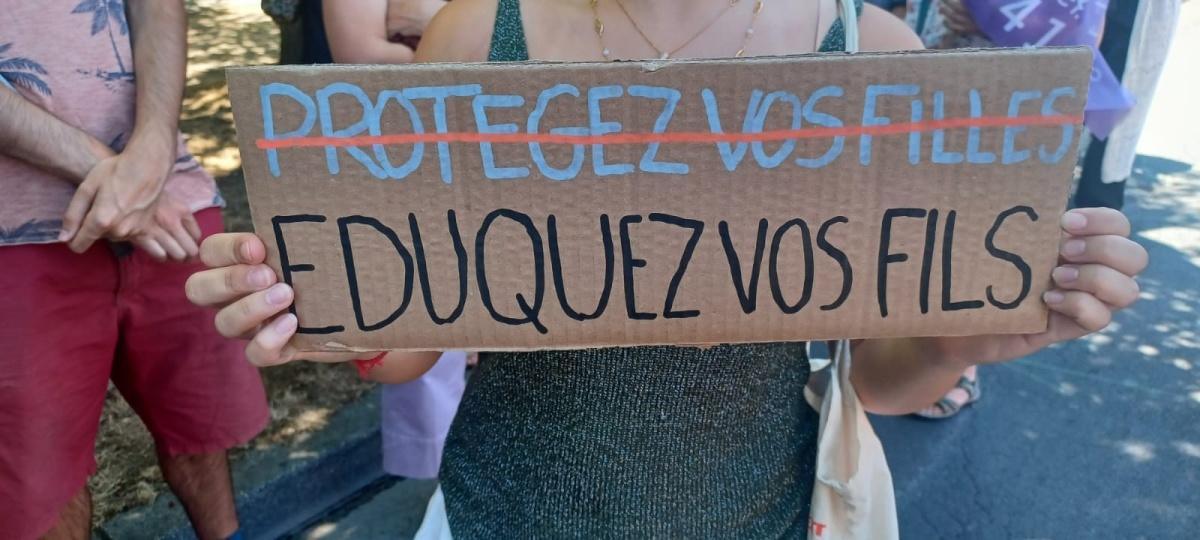 PROTEGEZ VOS FILLES
EDUQUEZ VOS FILS
41